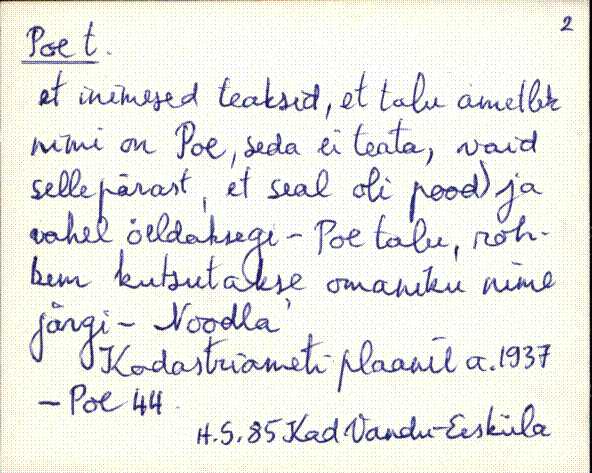 2
Poe t.
et inimesed teaksid, et talu ametlik
nimi on Poe, seda ei teata, vaid
sellepärast, et seal oli pood) ja
vahel öeldaksegi – Poe talu, roh-
kem kutsutakse omaniku nime
järgi – Noodla'
Kadastriameti plaanil a. 1937
– Poe 44.
H.S. 85 Kad Vandu-Eesküla